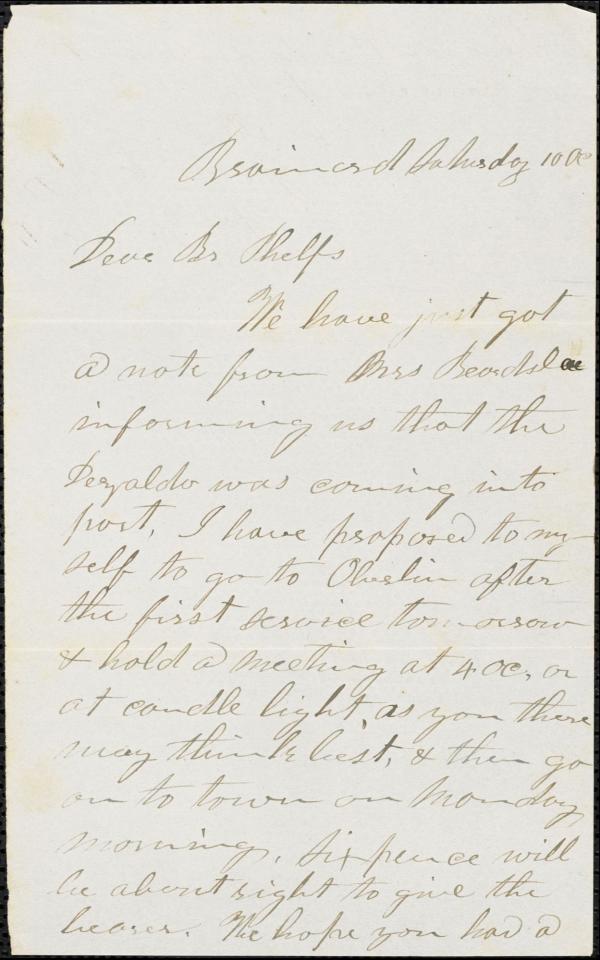 Brainerd Saturday 10 Oc
Dear Br Phelps
We have just got
a note from Mrs Beardslee
informing us that the
was coming into
port, I have proposed to my-
self to go to Oberlin after
the first service tomorrow
& hold a meeting at 4 oc, or
at candle light, as you there
may think best, & then go
on to town on Monday
morning, Sixpence will
be about right to give the
bearer. We hope you had a